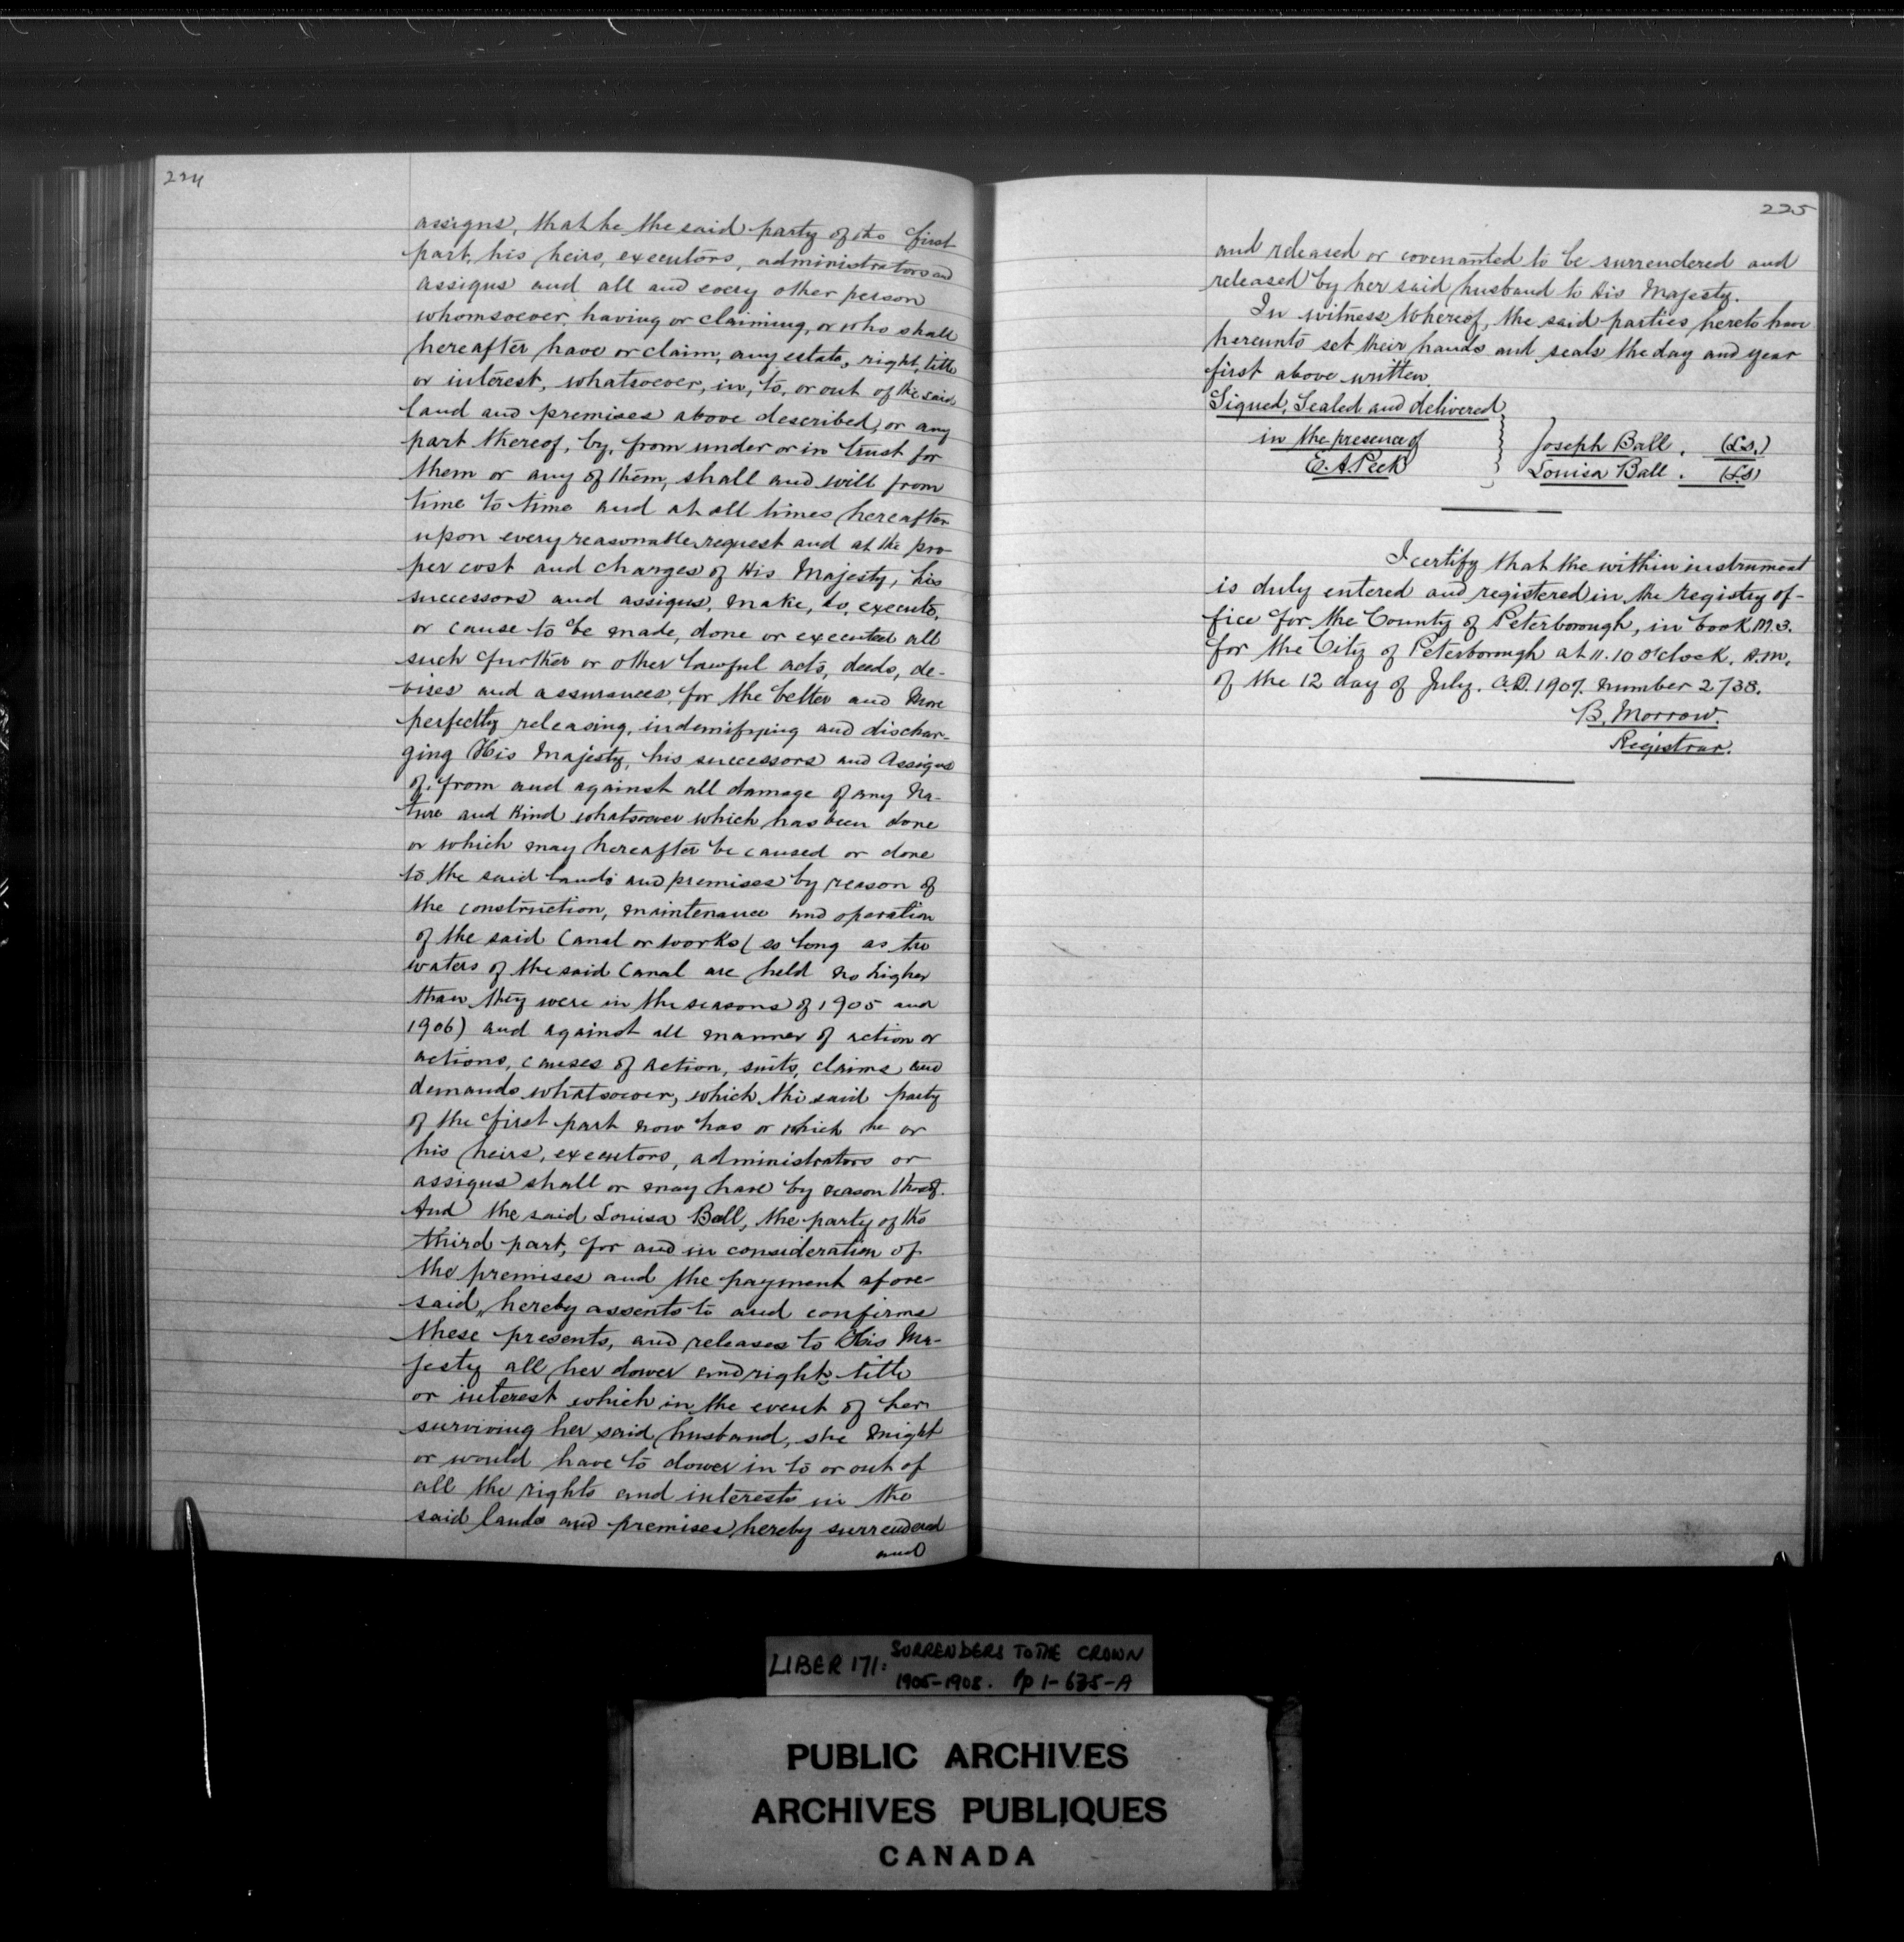 224
assigns, that he the said party of the first
part, his heirs, executors, administrators and
assigns and all and every other person
whomsoever, having or claiming, or who shall
hereafter have or claim, any estate, right, title
or interest, whatsoever, in, to, or out of the said
land and premises above described, or any
part thereof, by, from under or in trust for
them or any of them, shall and will from
time to time and at all times hereafter
upon every reasonable request and at the pro-
per cost and charges of His Majesty, his
successors and assigns, make, do, execute,
or cause to be made, done or executed all
such further or other lawful acts, deeds, de-
vises and assurances, for the better and more
perfectly releasing, indemifying and dischar-
ging His Majesty, his successors and Assigns
of, from and against all damage of any na-
ture and kind whatsoever which has been done
or which may hereafter be caused or done
to the said lands and premises by reason of
the construction, maintenance and operation
of the said Canal or works (so long as the
waters of the said Canal are held no higher
than they were in the seasons of 1905 and
1906) and against all manner of action or
actions, causes of action, suits, claims and
demands whatsoever, which the said party
of the first part now has or which he or
his heirs, executors, administrators or
assigns shall or may have by reason thereof.
And the said Louisa Ball, the party of the
third part, for and in consideration of
the premises and the payment afore-
said, hereby assents to and confirms
these presents, and releases to His Ma-
jesty all her dower and right, title
or interest which in the event of her
surviving her said husband, she might
or would have to dower in to or out of
all the rights and interests in the
said lands and premises hereby surrendered
and
225
and released or covenanted to be surrendered and
released by her said husband to His Majesty.
In witness Whereof, the said parties hereto have
hereunto set their hands and seals the day and year
first above written.
Signed, Sealed and delivered
in the presence of
E. A. Peck
Joseph Ball. (L.S.)
Louisa Ball. (L.S)
I certify that the within instrument
is duly entered and registered in the Registry of-
fice for the County of Peterborough, in book M.3.
for the City of Peterborough at 11.10 o'clock, A.M.
of the 12 day of July. A.D. 1907. number 2738.
B. Morrow.
Registrar.
LIBER 171: SURRENDERS TO THE CROWN
1905-1908. Pp 1-635-A
PUBLIC ARCHIVES
ARCHIVES PUBLIQUES
CANADA